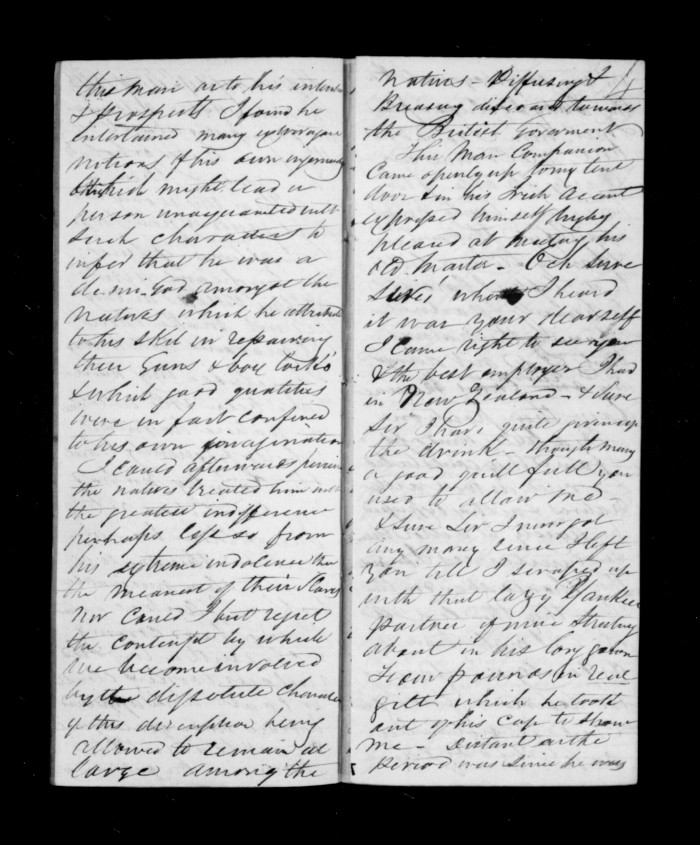 this man as to his inten
& prospects I found he
entertained many extravagant
notions of his own
which might lead a
person unacquainted with
such characters to
infer that he was a
demi-god amongst the
natives which he attributed
to his skil in repairing
their Guns & box lock's
& which good qualities
were in fact confined
to his own imagination
I could afterwards
the natives treated him
the greatest indifference
perhaps less so from
his extreme indolence than
the meanest of their slaves
nor could I but regret
the contempt by which
we become involved
by the dissolute character
of this discription being
allowed to remain at
large among the
4
natives - Diffusing &
towards
the British Goverment
This Man Companion
Came openly up to my tent
door & in his Irish Accent
expressed himself highly
pleased at meeting his
old Master - Och sure
Sure's when I heard
it was your dearself
I came right to see you
& the best employer I had
in New Zealand - & sure
Sir I have quite given up
the drink - though many
a good quill full you
used to allow me -
& sure Sir I niver got
any money since I left
you till I scraped up
with that lazy Yankee
partner of mine
about in his long gown
Four pounds in real
gilt which he took
out of his cap to show
me - Distant as the
period was since he was